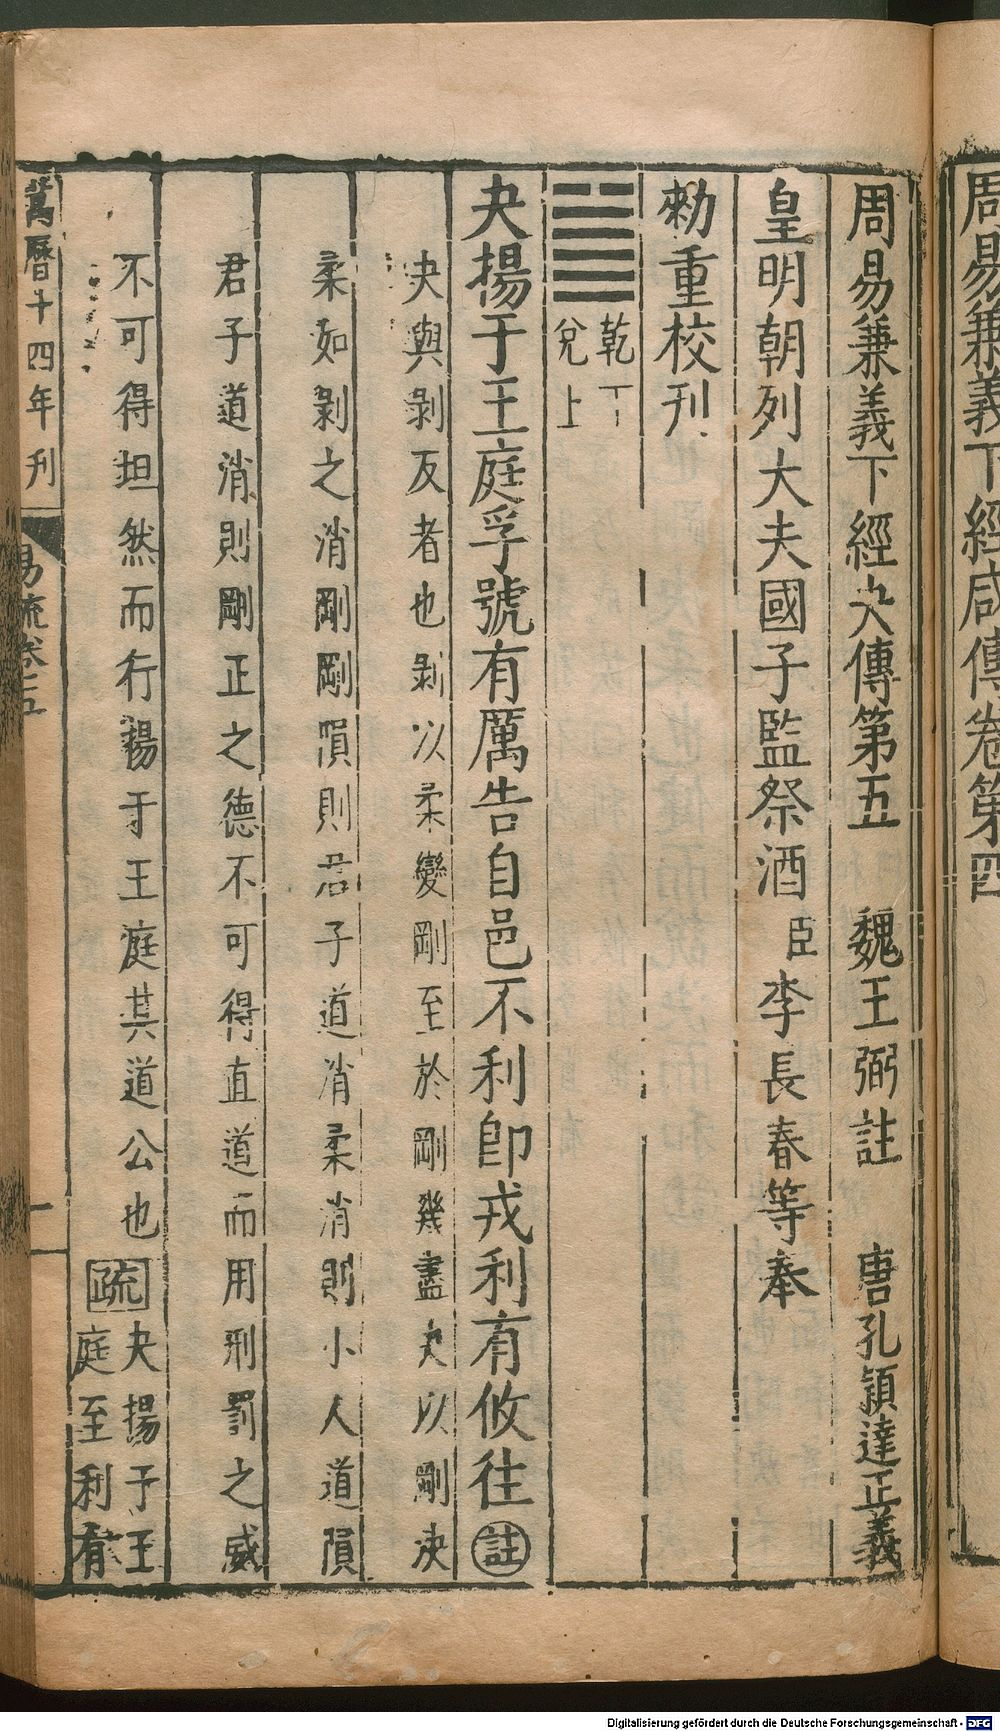 周易兼義下經咸傳卷第四
周易兼義下經夬傳第五　魏王弼註　唐孔穎達正義
皇明朝列大夫國子監祭酒臣李長春等奉
勑重校刊
乾下
兌上
夬揚于王庭孚號有厲告自邑不利卽戎利有攸往註
夬與剝反者也剝以柔變剛至於剛幾盡夬以剛决
柔如剝之消剛剛隕則君子道消柔消則小人道隕
君子道消則剛正之德不可得直道而用刑罰之威
不可得坦然而行揚于王庭其道公也疏夬揚于王
庭至利有
萬曆十四年刊
易疏卷五
一
Digitalisierung gefördert durch die Deutsche Forschungsgemeinschaft - DFG